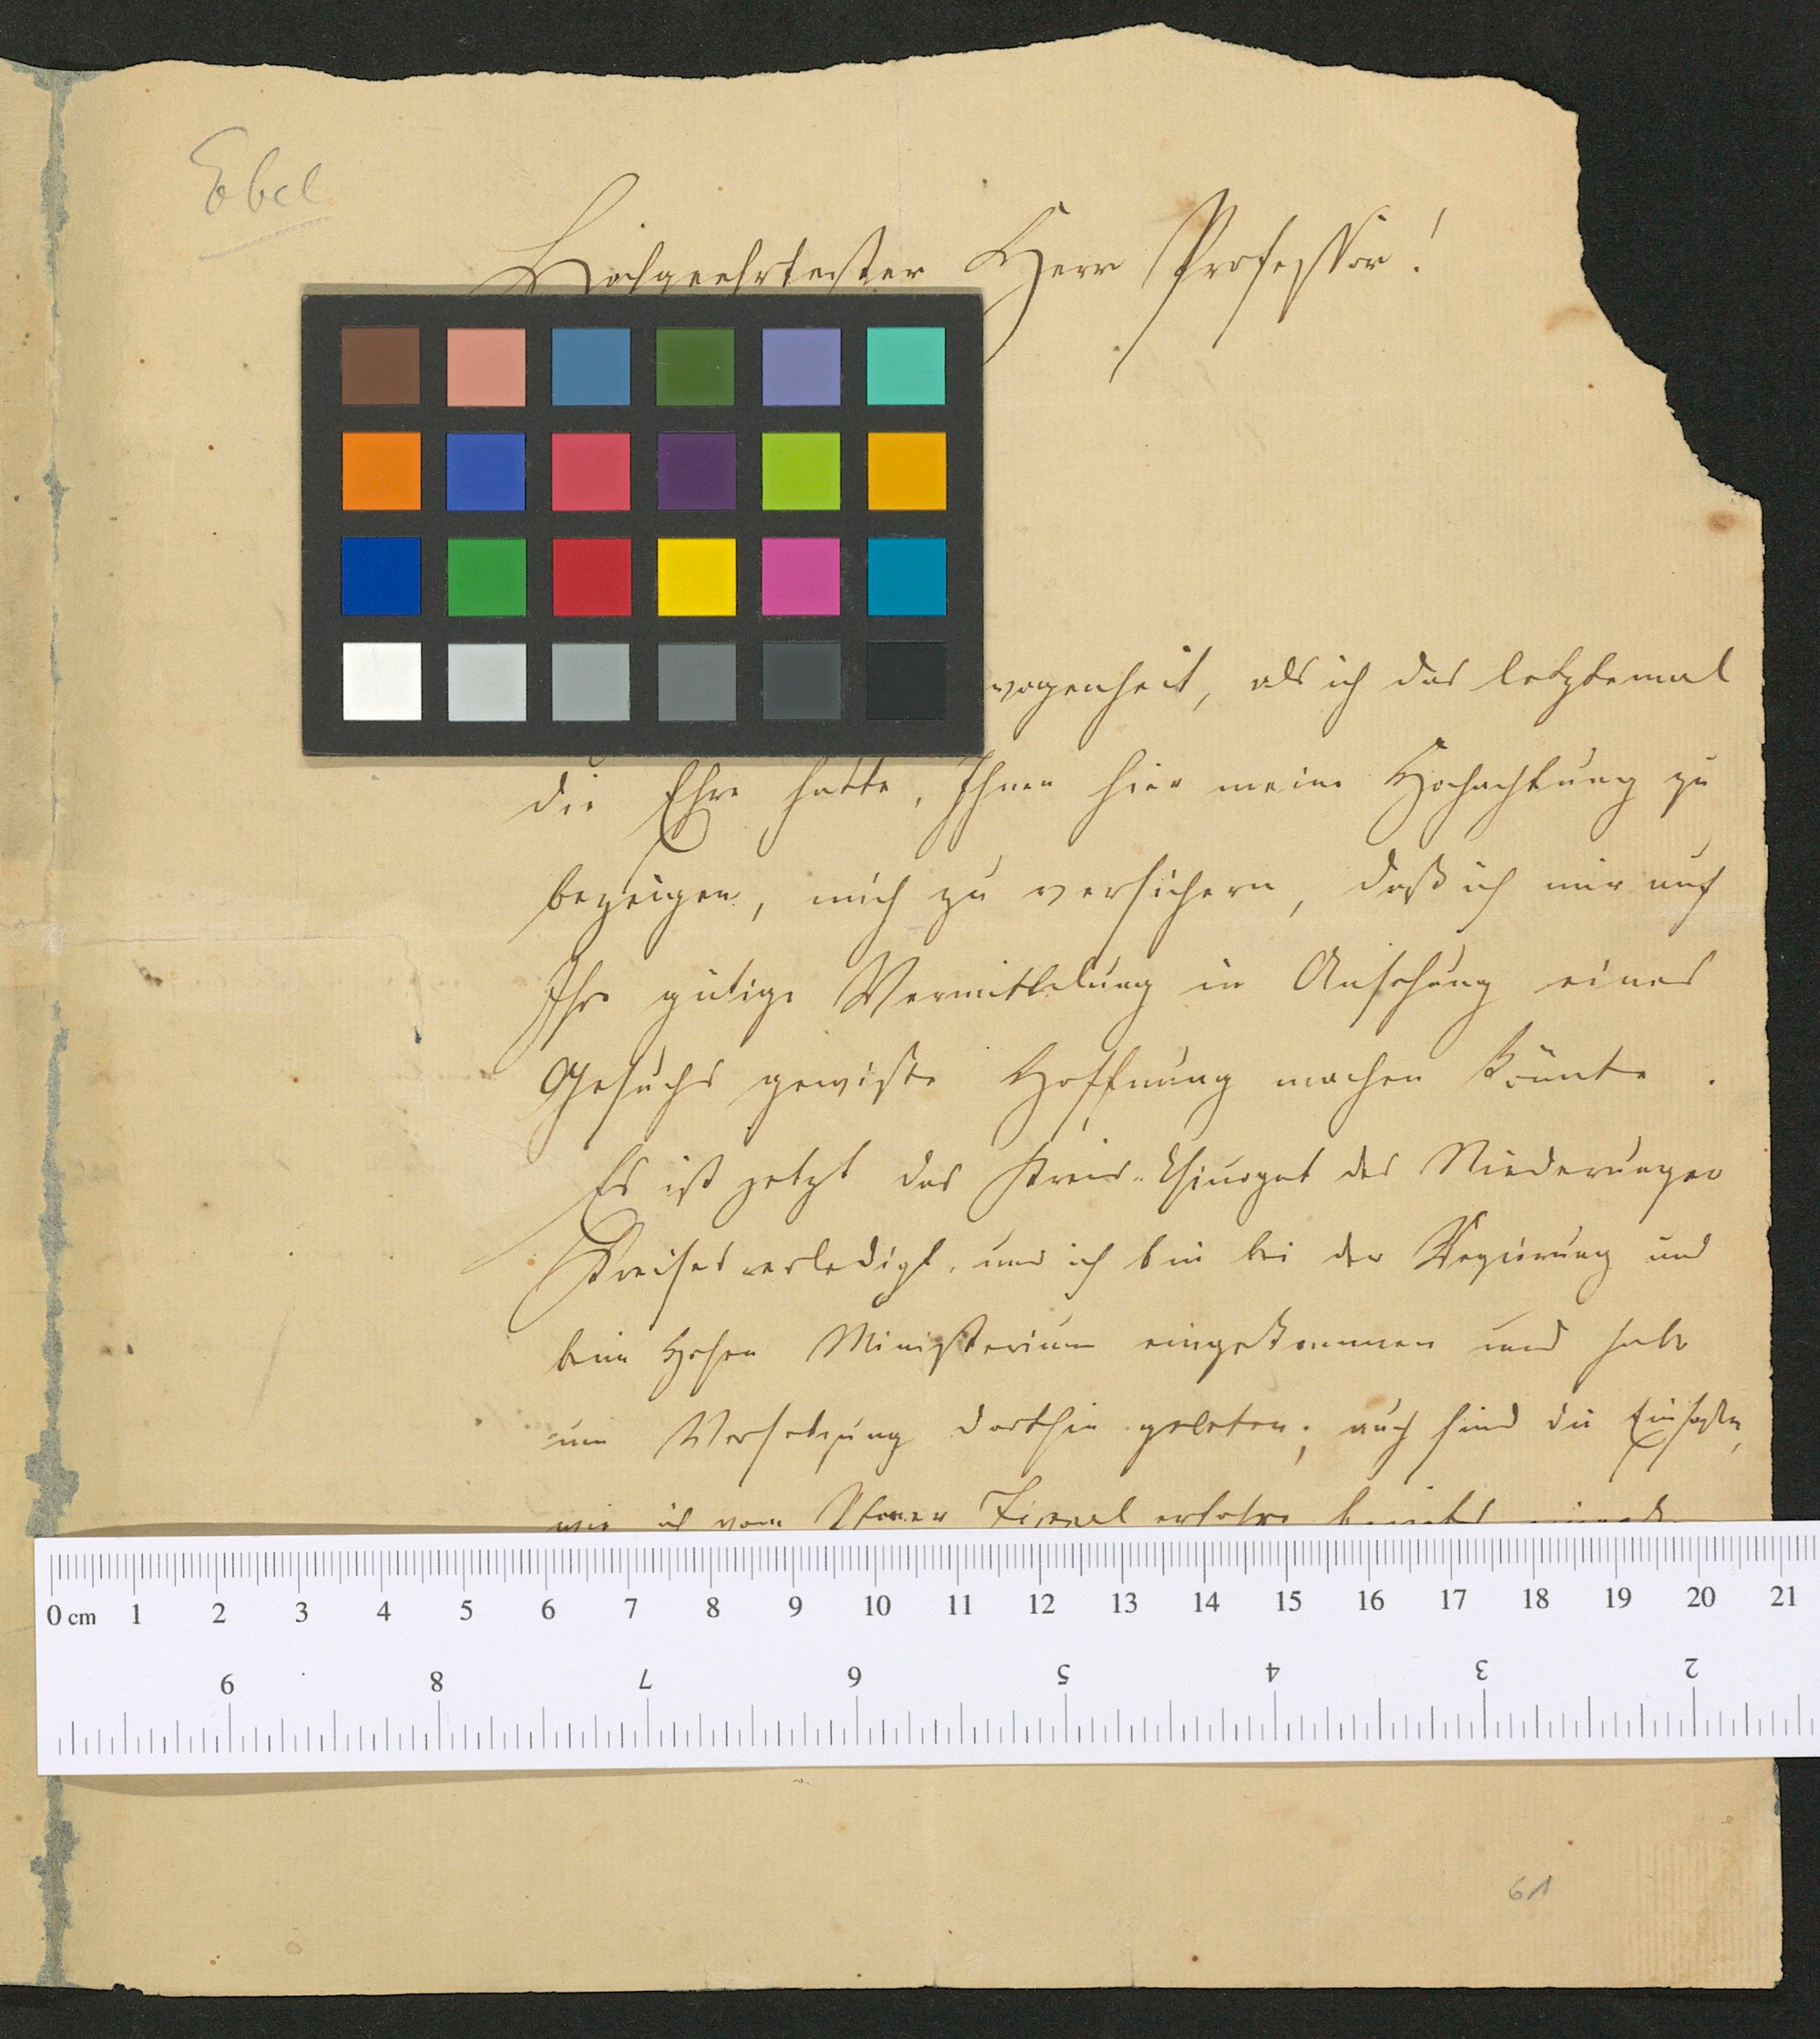 Ebel
Hochgeehrtester Herr Professor!
wogenheit, als ich das letztemal
die Ehre hatte, Ihnen hier meine Hochachtung zu
bezeigen, mich zu versichern, daß ich mir auf
Ihre gütige Vermittelung in Ansehung eines
Gesuchs gewisse Hoffnung machen könnte.
Es ist jetzt das Kreis-Chirurgat des Niederunger
Kreises erledigt, und ich bin bei der Regierung und
beim Hohen Ministerium eingekommen und habe
um Versetzung dorthin gebeten; auch sind die Einsaßen,
wie ich vom erfahre
0 cm 1 2 3 4 5 6 7 8 9 10 11 12 13 14 15 16 17 18 19 20 21
9 8 7 6 5 4 3 2
61